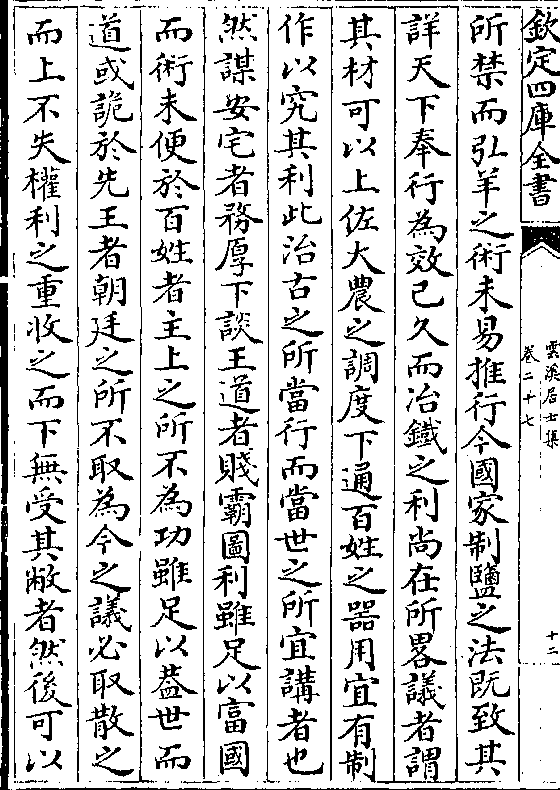 欽定四庫全書
雲溪居士集
卷二十七
十二
所禁而弘羊之術未易推行今國家制鹽之法既致其
詳天下奉行為效已久而冶鐵之利尚在所畧議者謂
其材可以上佐大農之調度下通百姓之器用宜有制
作以究其利此冶古之所當行而當世之所宜講者也
然謀安宅者務厚下談王道者賤霸圖利雖足以富國
而術未便於百姓者主上之所不為功雖足以葢世而
道或詭於先王者朝廷之所不取為今之議必取散之
而上不失權利之重收之而下無受其敝者然後可以